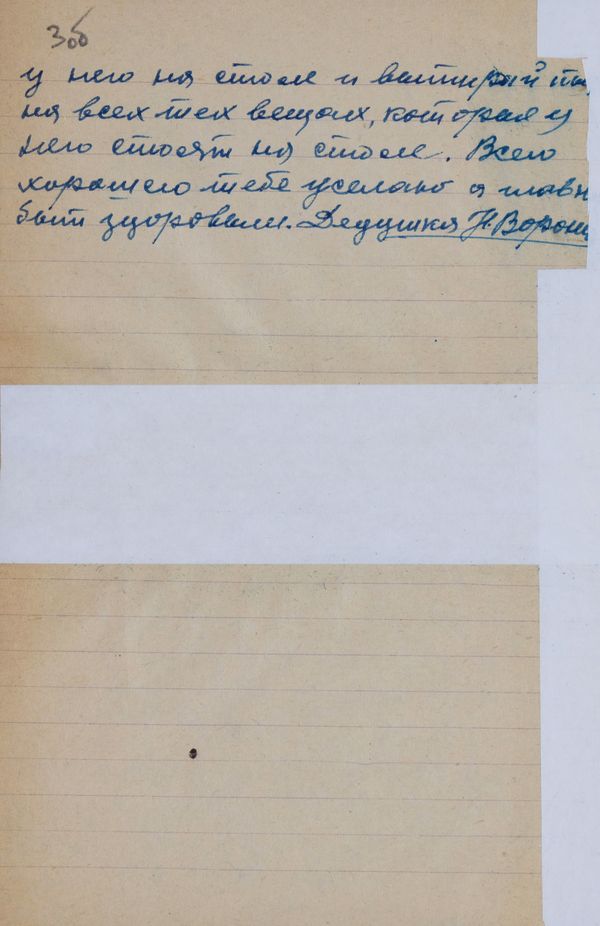 3об
у него на столе и вытирай
на всех тех вещах, которые у
него стоят на столе. Всего
хорошего тебе желаю а главн
быть здоровым. Дедушка Н. Ворон